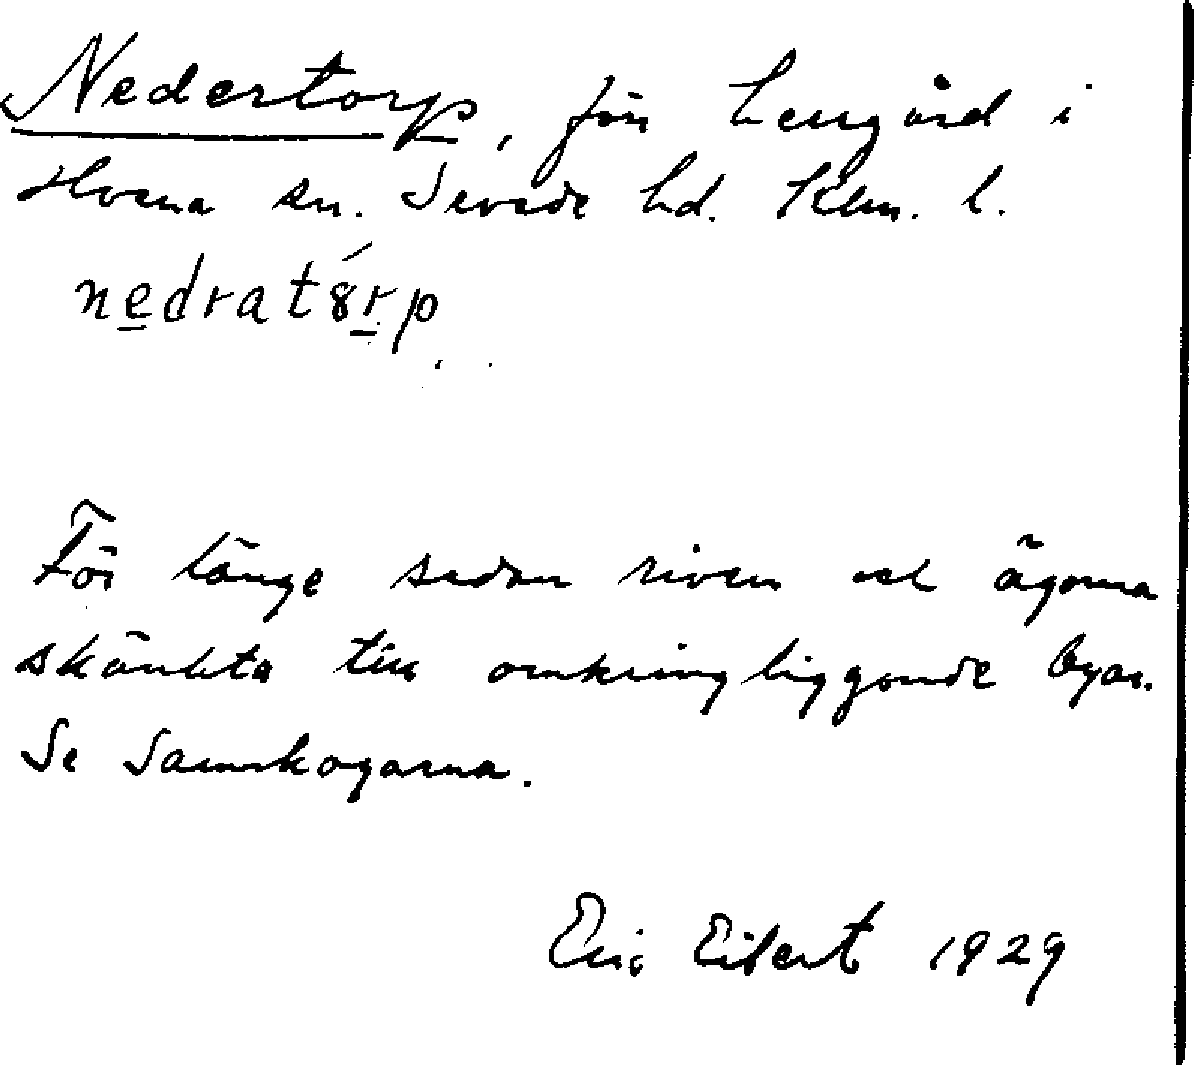 Nedertorp, förr herrgård i
Hvena sn. Sevede hd. Klm. l.
nedratȣrp
För länge sedan riven och ägorna
skänkta till omkringliggande byar.
Se Samskogarna.
Eric Eibert 1929